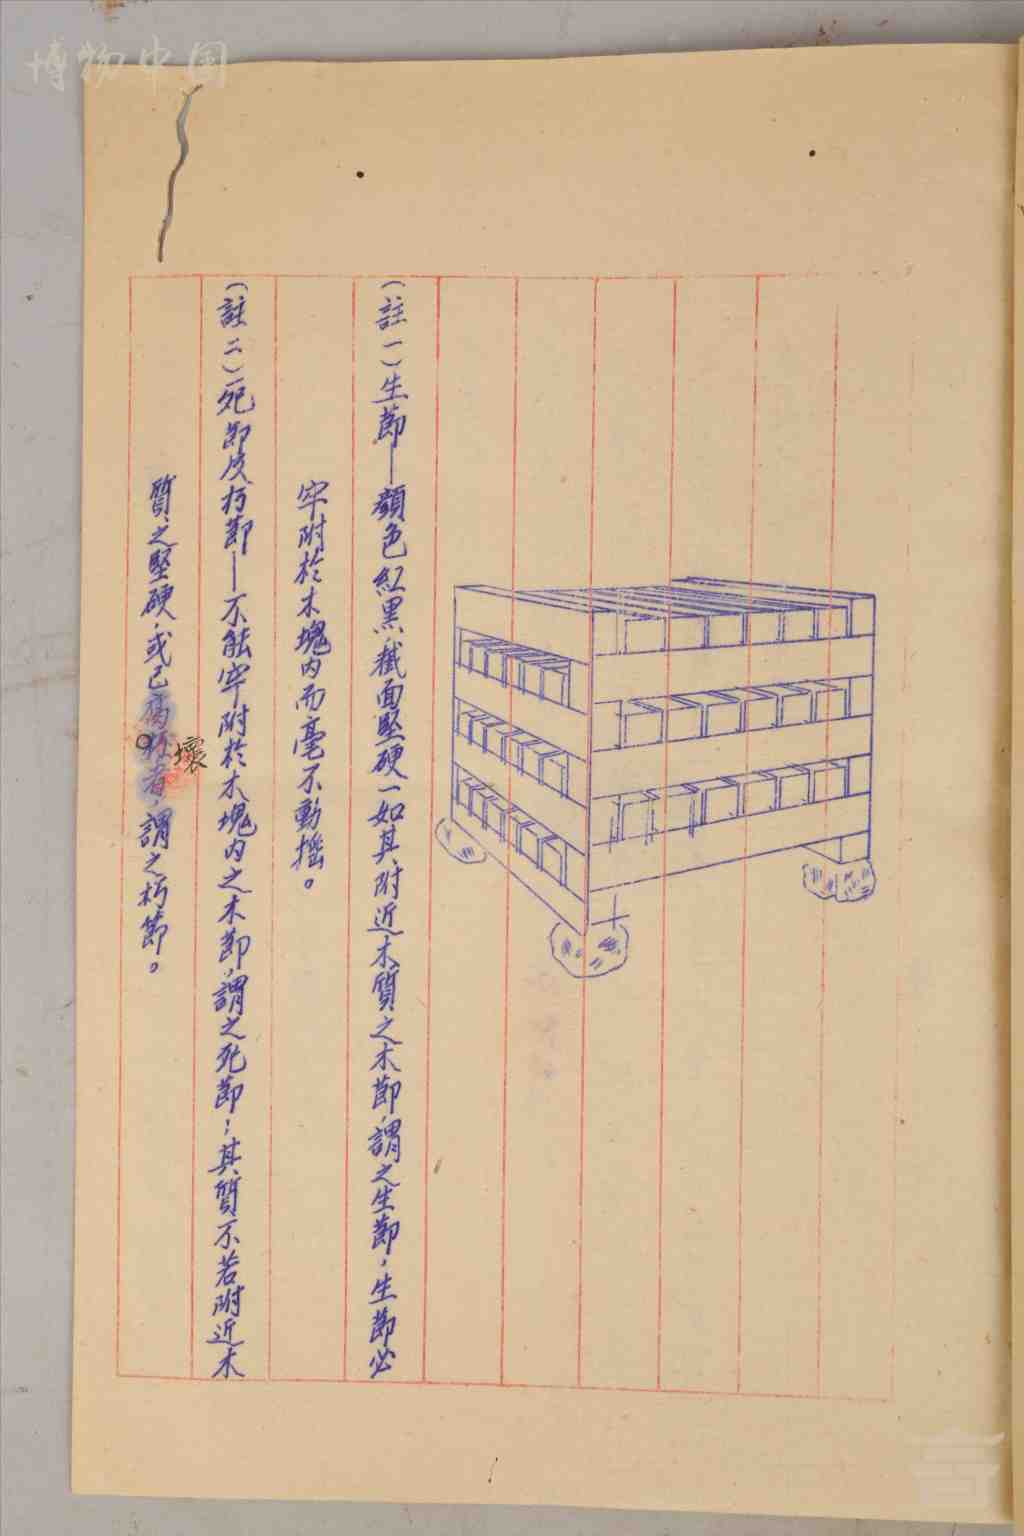 博物中国
(註一)生節—顏色紅黑,截面堅硬一如其附近木質之木節,謂之生節,生節必
牢附於木塊内而毫不動搖。
(註二)死節及朽節—不能牢附於木塊内之木節,謂之死節;其質不若附近木
質之堅硬,或已腐壞者,謂之朽節。